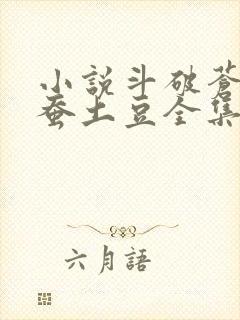 小説斗破蒼
蚕土豆全集
六月語